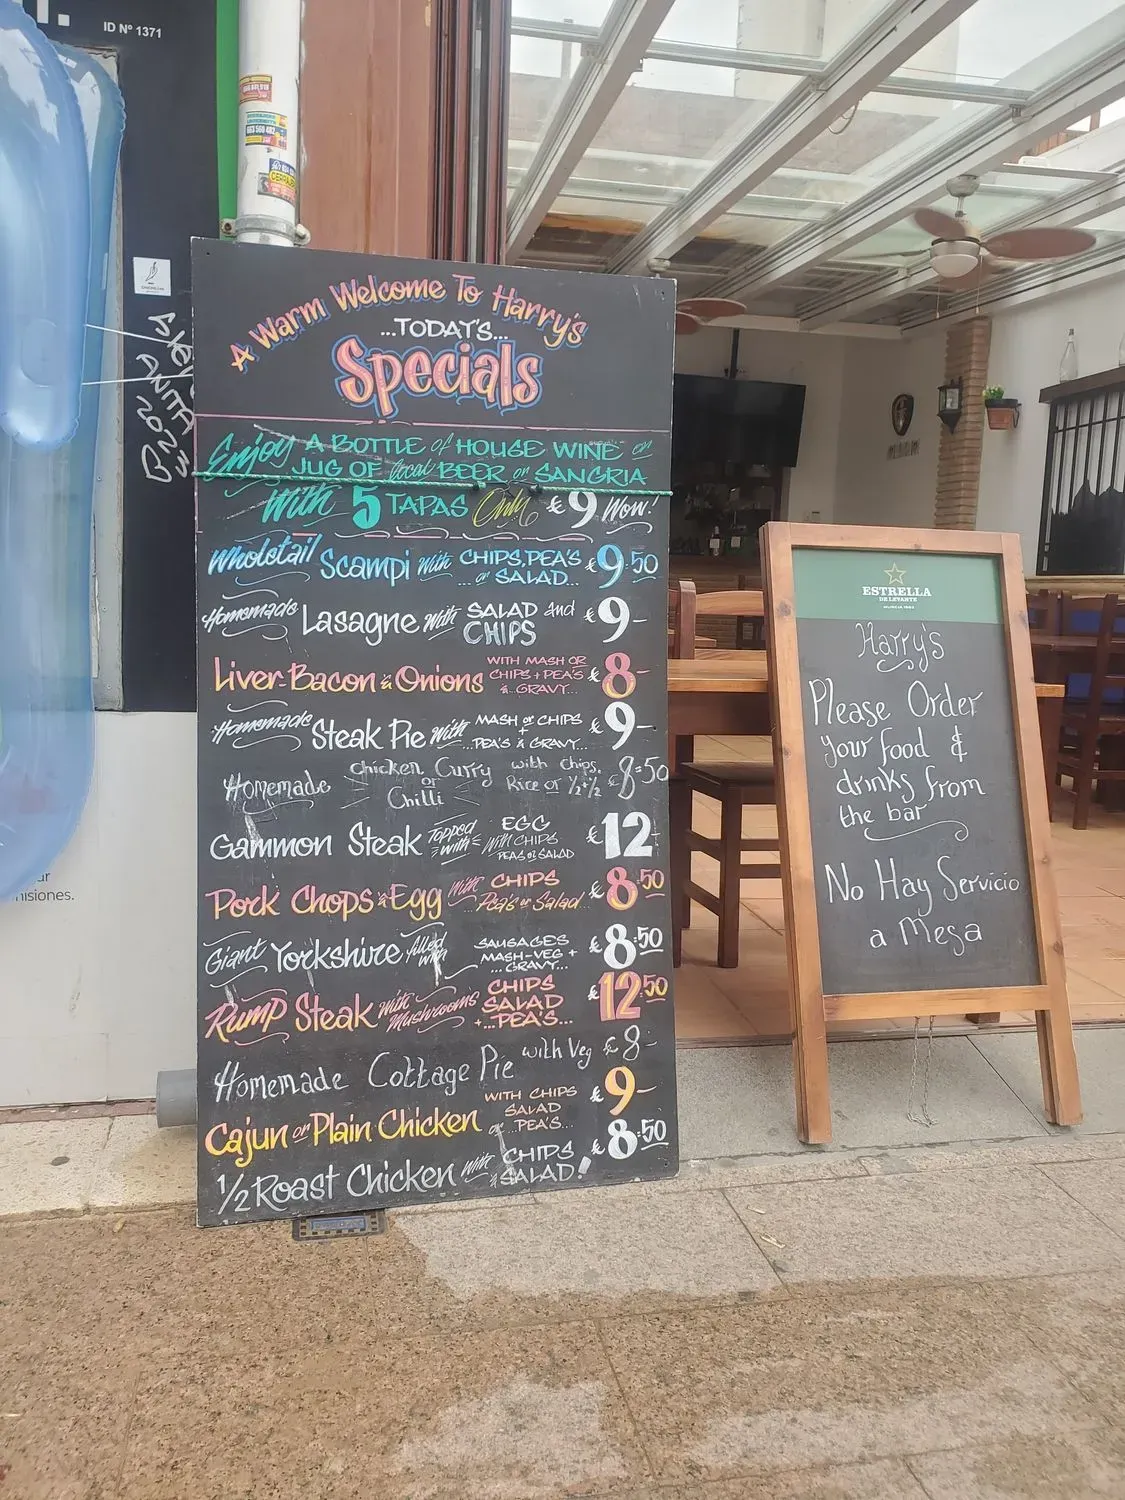 ID Nº 1371
A Warm Welcome To Harry's
...TODAY'S...
Specials
Enjoy A BOTTLE of HOUSE WINE or
JUG OF local BEER or SANGRIA
With 5 TAPAS Only €9 Wow!
Wholetail Scampi with CHIPS, PEA'S €9.50
... or SALAD...
Homemade Lasagne with SALAD and €9-
CHIPS
Liver-Bacon & Onions WITH MASH OR €8-
CHIPS + PEA'S
& GRAVY...
Homemade Steak Pie with MASH or CHIPS €9-
+
...PEA'S & GRAVY...
Homemade Chicken Curry with Chips, €8=50
or Rice or 1/2+1/2
Chilli
Gammon Steak Topped with EGG €12
With CHIPS
PEAS or SALAD
Pork Chops & Egg with CHIPS €8.50
...Pea's or Salad...
Giant Yorkshire filled with SAUSAGES €8.50
MASH-VEG +
...GRAVY...
Rump Steak with Mushrooms CHIPS €12.50
SALAD
+...PEA'S...
Homemade Cottage Pie with Veg €8-
Cajun or Plain Chicken WITH CHIPS €9-
SALAD
or ...PEA'S...
1/2 Roast Chicken with CHIPS €8.50
& SALAD!
ESTRELLA
DE LEVANTE
MURCIA 1963
Harry's
Please Order
your food &
drinks from
the bar
No Hay Servicio
a Mesa
ANITA
2023
nisiones.